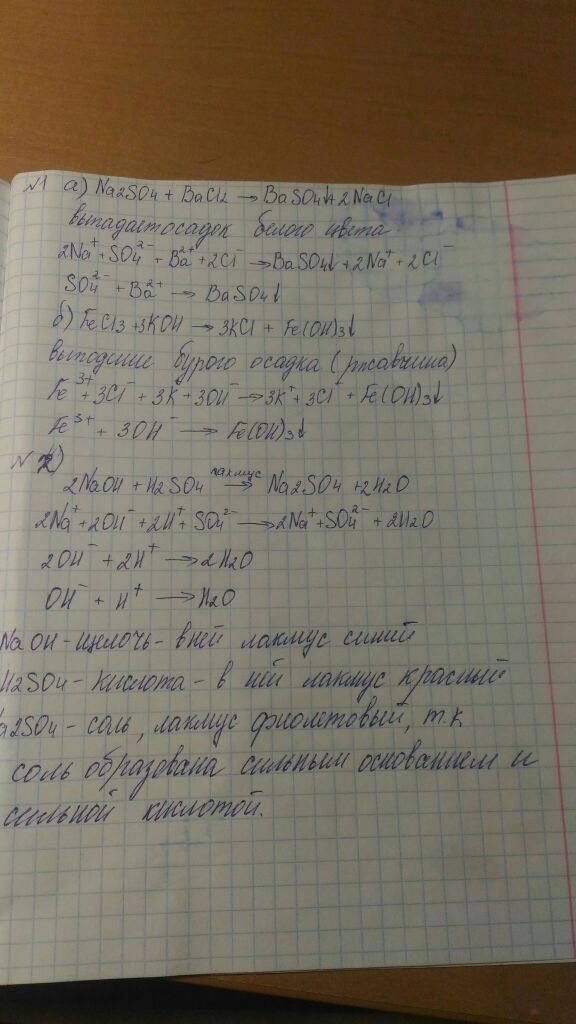 №1 а) Na2SO4 + BaCl2 → BaSO4↓+2NaCl
выпадает осадок белого цвета
2Na⁺+SO4²⁻+Ba²⁺+2Cl⁻→BaSO4↓+2Na⁺+2Cl⁻
SO4²⁻+Ba²⁺→BaSO4↓
б) FeCl3+3KOH → 3KCl + Fe(OH)3↓
выпадение бурого осадка (ржавчина)
Fe³⁺+3Cl⁻+3K⁺+3OH⁻→3K⁺+3Cl⁻+Fe(OH)3↓
Fe³⁺ + 3OH⁻ → Fe(OH)3↓
№ 2)
лакмус
2NaOH + H2SO4 → Na2SO4 +2H2O
2Na⁺+2OH⁻+2H⁺+SO4²⁻→2Na⁺+SO4²⁻+2H2O
2OH⁻ + 2H⁺ → 2H2O
OH⁻ + H⁺ → H2O
NaOH-щелочь-в ней лакмус синий
H2SO4-кислота-в ней лакмус красный
a2SO4-соль, лакмус фиолетовый, т.к
соль образована сильным основанием и
сильной кислотой.